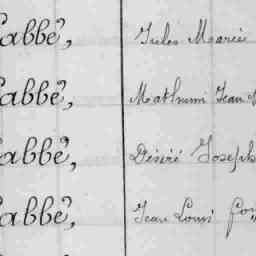 abbé, Jules Marie
abbé, Mathurin Jean
abbé, Désiré Joseph
abbé, Jean Louis